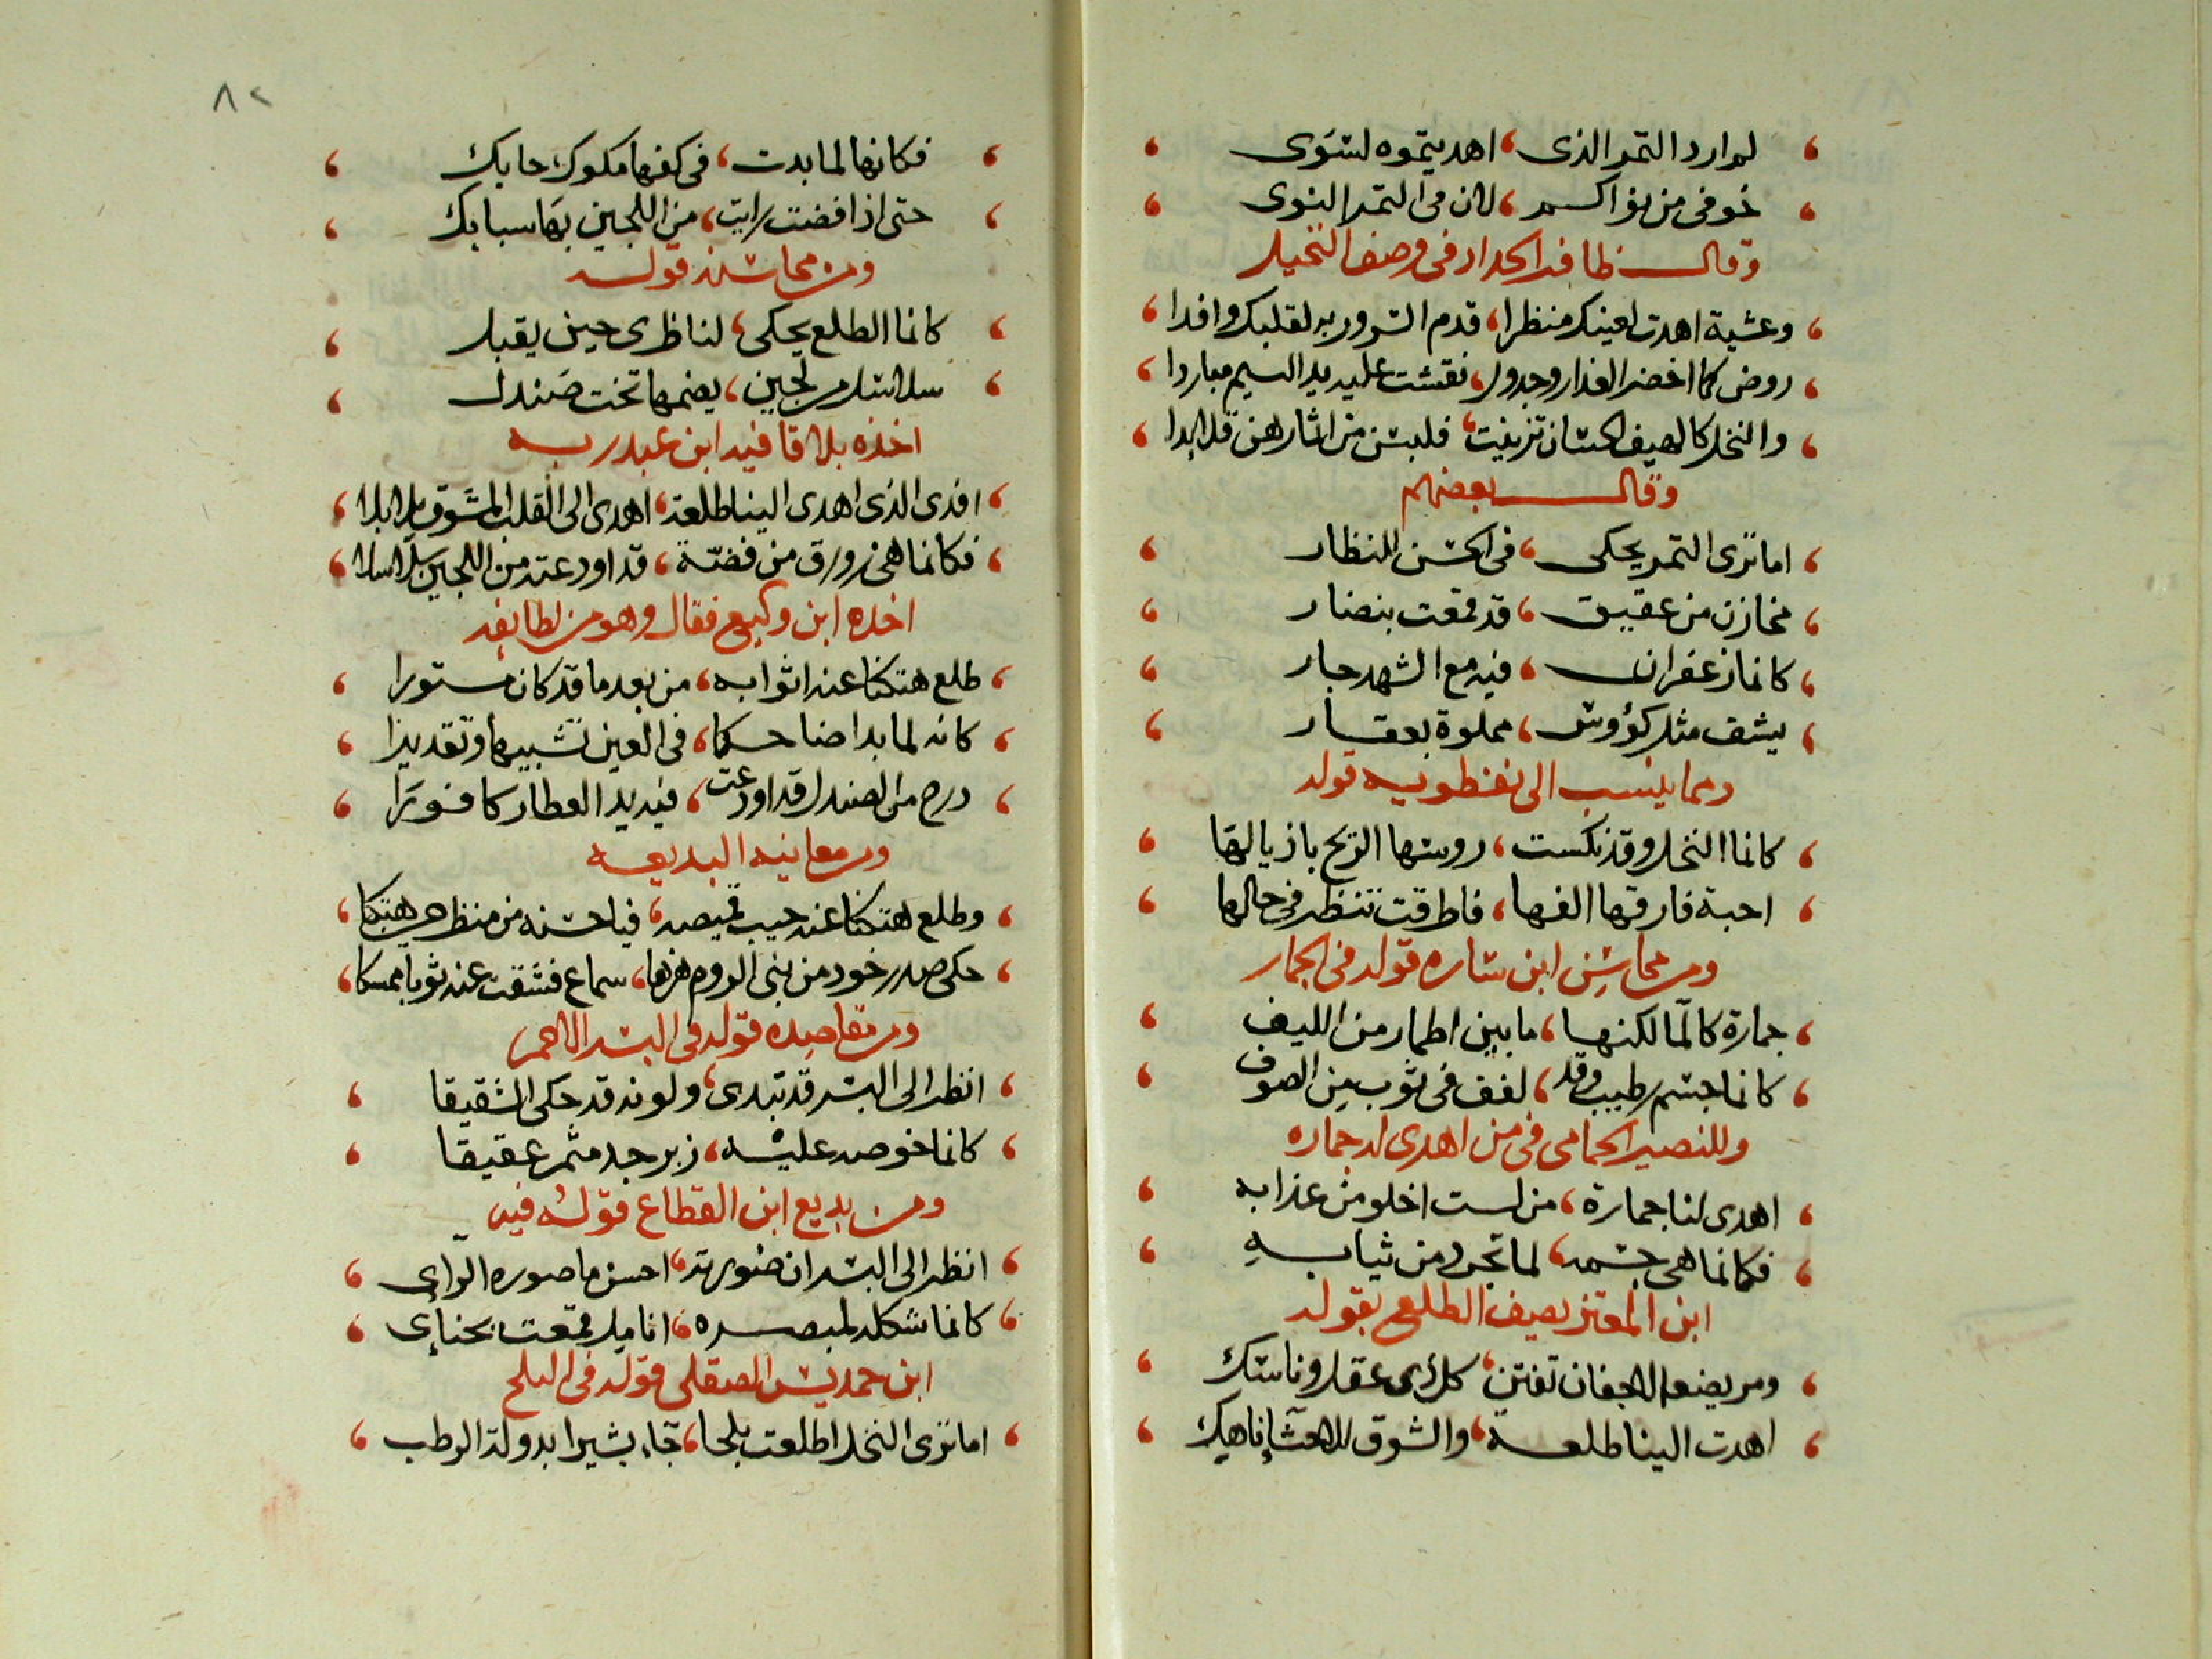 لم ارد التمر الذى ، اهديتموه لسَوى
خوفى من نواكم ، لان فى التمر النوى
وقال ظافر الحداد فى وصف النخيل
وعشية اهدت لعينك منظرا ، قدم السرور به لقلبك وافدا
روض كما اخضر العذار وجدول ، نقشت عليه يد النسيم مباردا
والنخل كالهيف الحسان تزينت ، فلبسن من اثمارهن قلايدا
وقال بعضهم
اما ترى التمر يحكى ، فى الحسن للنظار
مخازن من عقيق ، قد قمعت بنضار
كانما زعفران ، فيه مع الشهد جار
يشف مثل كؤوس ، مملوة بعقار
ومما ينسب الى نفطويه قوله
كانما النخل وقد نكست ، روسها الريح باذيالها
احبة فارقها الفها ، فاطرقت تنظر فى حالها
ومن محاسن ابن ساره قوله فى الجمار
جمارة كالما لكنها ، ما بين اطمار من الليف
كانما جسم رطيب وقد ، لفف فى ثوب من الصوف
وللنصير الحمامى فى من اهدى له جماره
اهدى لنا جمارة ، من لست اخلو من عذابه
فكانما هى جسمه ، لما تجرد من ثيابه
ابن المعتز يصف الطلع بقوله
ومريضة الاجفان تفتن ، كل ذى عقل وناسك
اهدت الينا طلعة ، والشوق للاحشا ناهيك
٨٢
فكانها لما بدت ، فى كفها مكوك حايك
حتى اذا فضت رايت ، من اللجين بها سبايك
ومن محاسنه قوله
كانما الطلع يحكى ، لناظرى حين يقبل
سلاسلا من لجين ، يضمها تخت صَندل
اخذه بلا قافيه ابن عبد ربه
افدى الذى اهدى الينا طلعة ، اهدى الى القلب المشوق بلابلا
فكانما هى زورق من فضّة ، قد اودعته من اللجين سلاسلا
اخذه ابن وكيع فقال وهو من لطايفه
طلع هتكنا عنه اثوابه ، من بعد ما قد كان مستورا
كانه لما بدا ضاحكا ، فى العين تشبيها وتقديرا
درج من الصندل قد اودعت ، فيه يد العطار كافورا
ومن معانيه البديعه
وطلع هتكنا عنه جيب قميصه ، فيا حسنه من منظر حين هتكا
حكى صدر خود من بنى الروم هزها ، سماع فشقت عنه ثوبا ممسكا
ومن مقاصده قوله فى البسر الاحمر
انظر الى البسر قد تبدى ، ولونه قد حكى الشقيقا
كانما خوصه عليه ، زبرجد مثمر عقيقا
ومن بديع ابن القطاع قوله فيه
انظر الى البسر ان صورته ، احسن ما صوره الراى
كانما شكله لمبصره ، انامل قمعت بحناى
ابن حمديس الصقلى قوله فى البلح
اما ترى النخل اطلعت بلحا ، جاء بشيرا بدولة الرطب